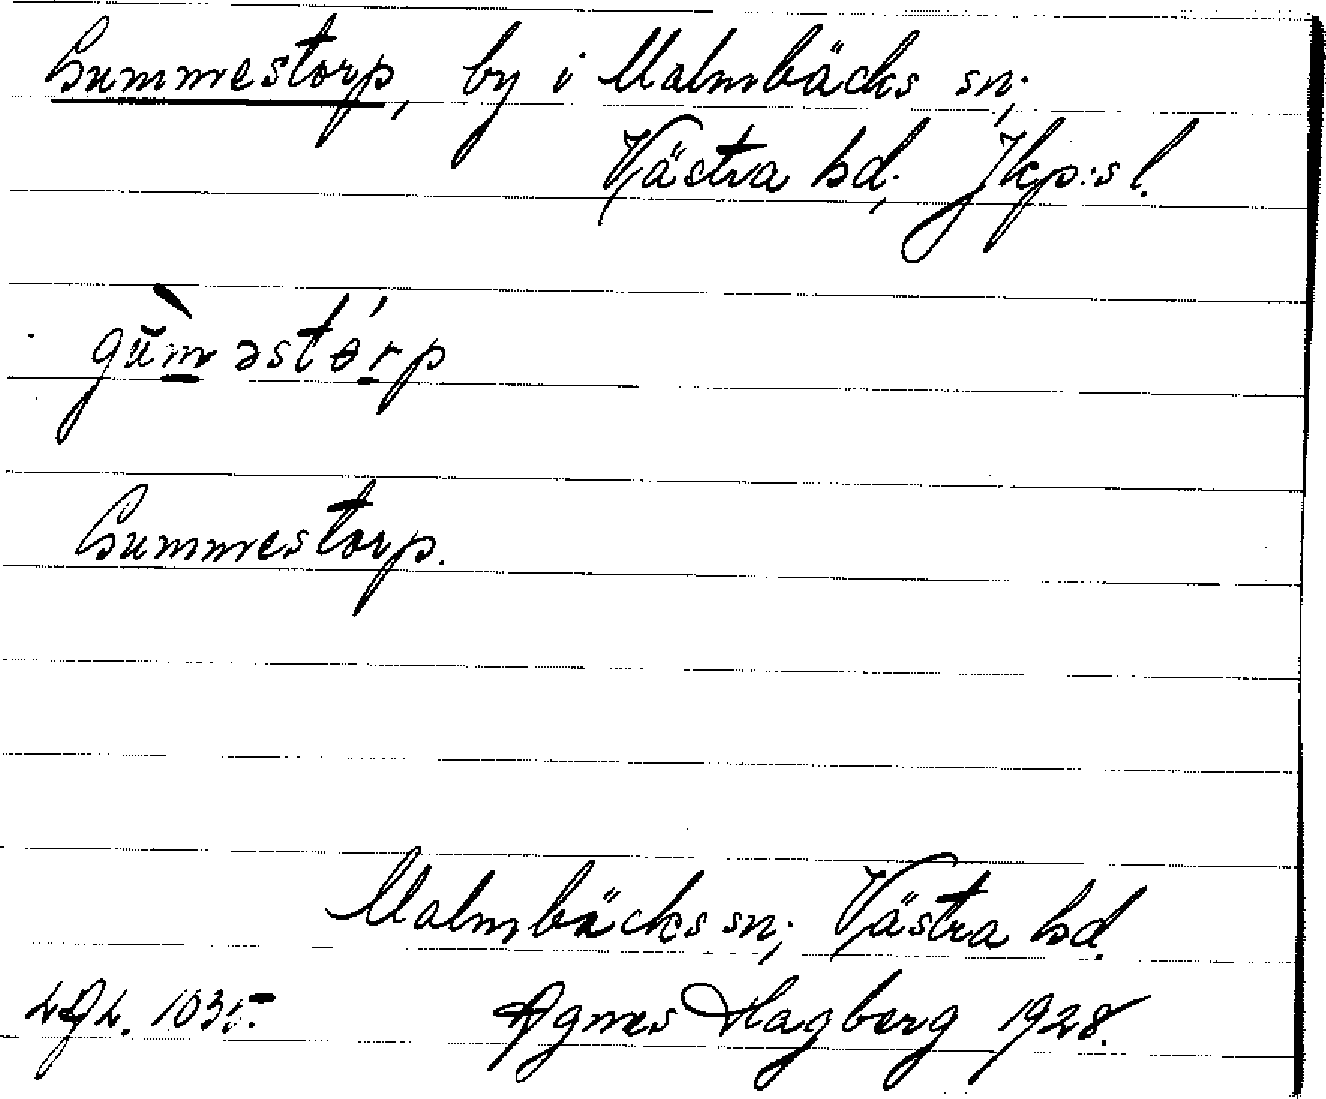 Gummestorp, by i Malmbäcks sn;
Västra hd; Jkp:s l.
gùməstórp
Gummestorp.
Malmbäcks sn; Västra hd.
LAL. 1035. Agnes Hagberg 1928.